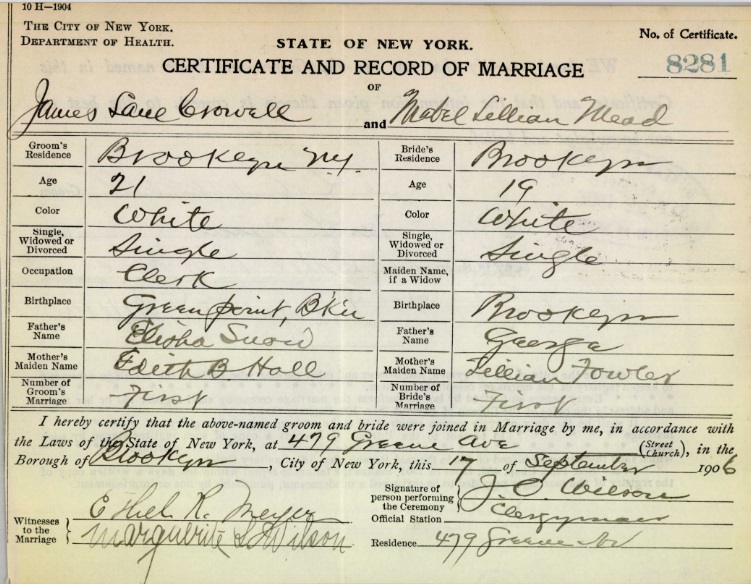 10 H—1904
THE CITY OF NEW YORK.
DEPARTMENT OF HEALTH.
STATE OF NEW YORK.
No. of Certificate.
CERTIFICATE AND RECORD OF MARRIAGE
8281
OF
James Lane Crowell and Mabel Lillian Mead
Groom's Residence Brooklyn N.Y. Bride's Residence Brooklyn
Age 21 Age 19
Color White Color White
Single, Widowed or Divorced Single Single, Widowed or Divorced Single
Occupation Clerk Maiden Name, if a Widow
Birthplace Greenpoint, Bkln Birthplace Brooklyn
Father's Name Elisha Snow Father's Name George
Mother's Maiden Name Edith B Hall Mother's Maiden Name Lillian Fowler
Number of Groom's Marriage First Number of Bride's Marriage First
I hereby certify that the above-named groom and bride were joined in Marriage by me, in accordance with
the Laws of the State of New York, at 479 Greene Ave (Street Church), in the
Borough of Brooklyn, City of New York, this 17 of September 1906
Signature of person performing the Ceremony J. O Wilson
Witnesses to the Marriage Ethel R. Meyer
Official Station Clergyman
Marguerite L. Wilson
Residence 479 Greene Av